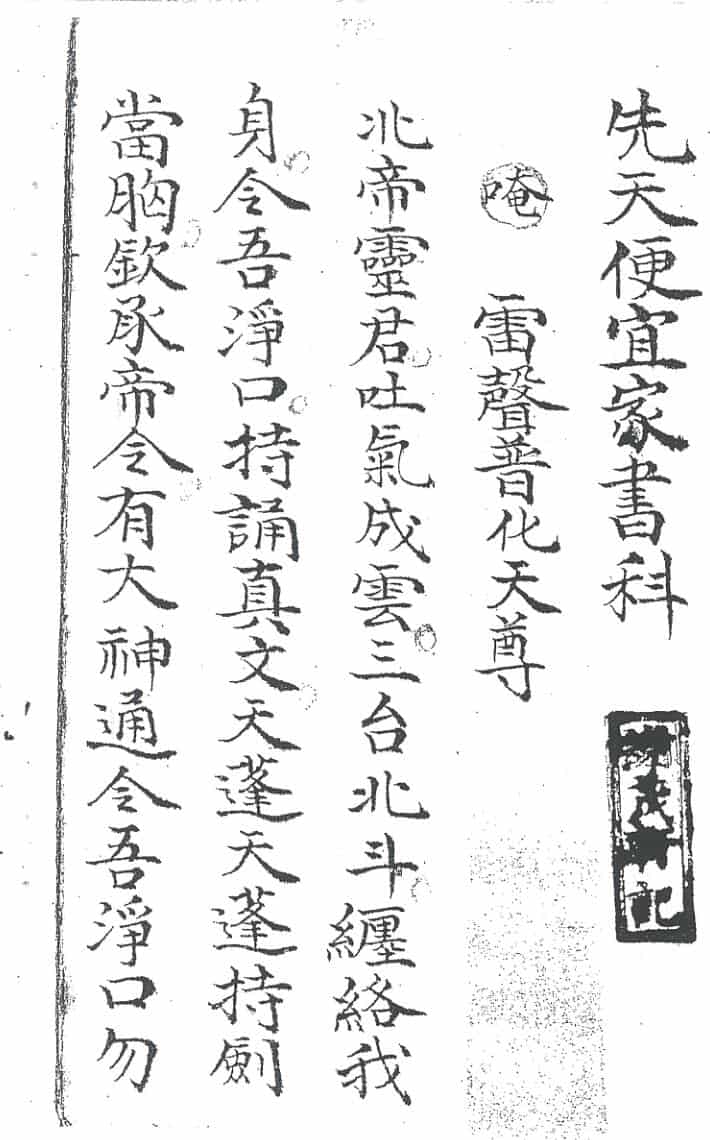 先天便宜家書科
唵 雷聲普化天尊
北帝靈君吐氣成雲三台北斗纏絡我
身令吾淨口持誦真文天蓬天蓬持劍
當胸欽承帝令有大神通令吾淨口勿